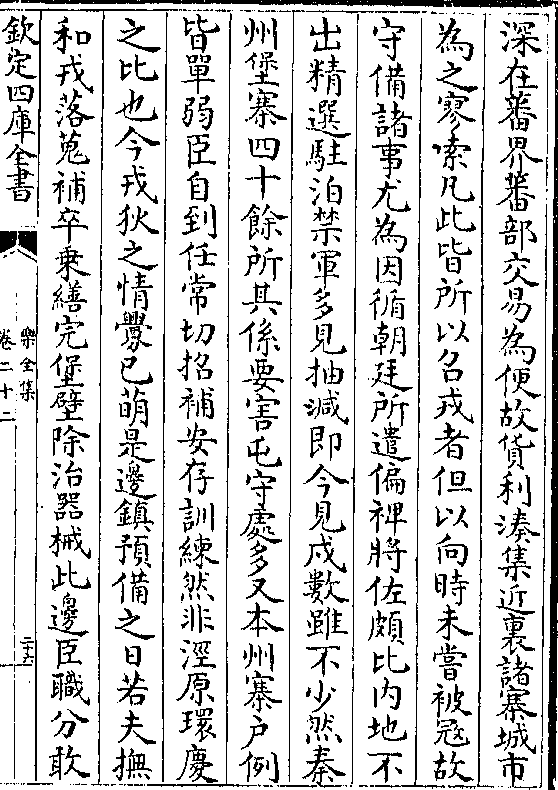 深在蕃界蕃部交易為便故貨利湊集近裏諸寨城市
為之寥索凡此皆所以召戎者但以向時未嘗被冦故
守備諸事尤為因循朝廷所遣偏裨將佐頗比内地不
出精選駐泊禁軍多見抽減即今見戍數雖不少然秦
州堡寨四十餘所其係要害屯守處多又本州寨户例
皆單弱臣自到任常切招補安存訓練然非涇原環慶
之比也今戎狄之情釁已萌是邊鎮預備之日若夫撫
和戎落蒐補卒乗繕完堡壁除治器械此邊臣職分敢
欽定四庫全書
樂全集
卷二十二
二十六